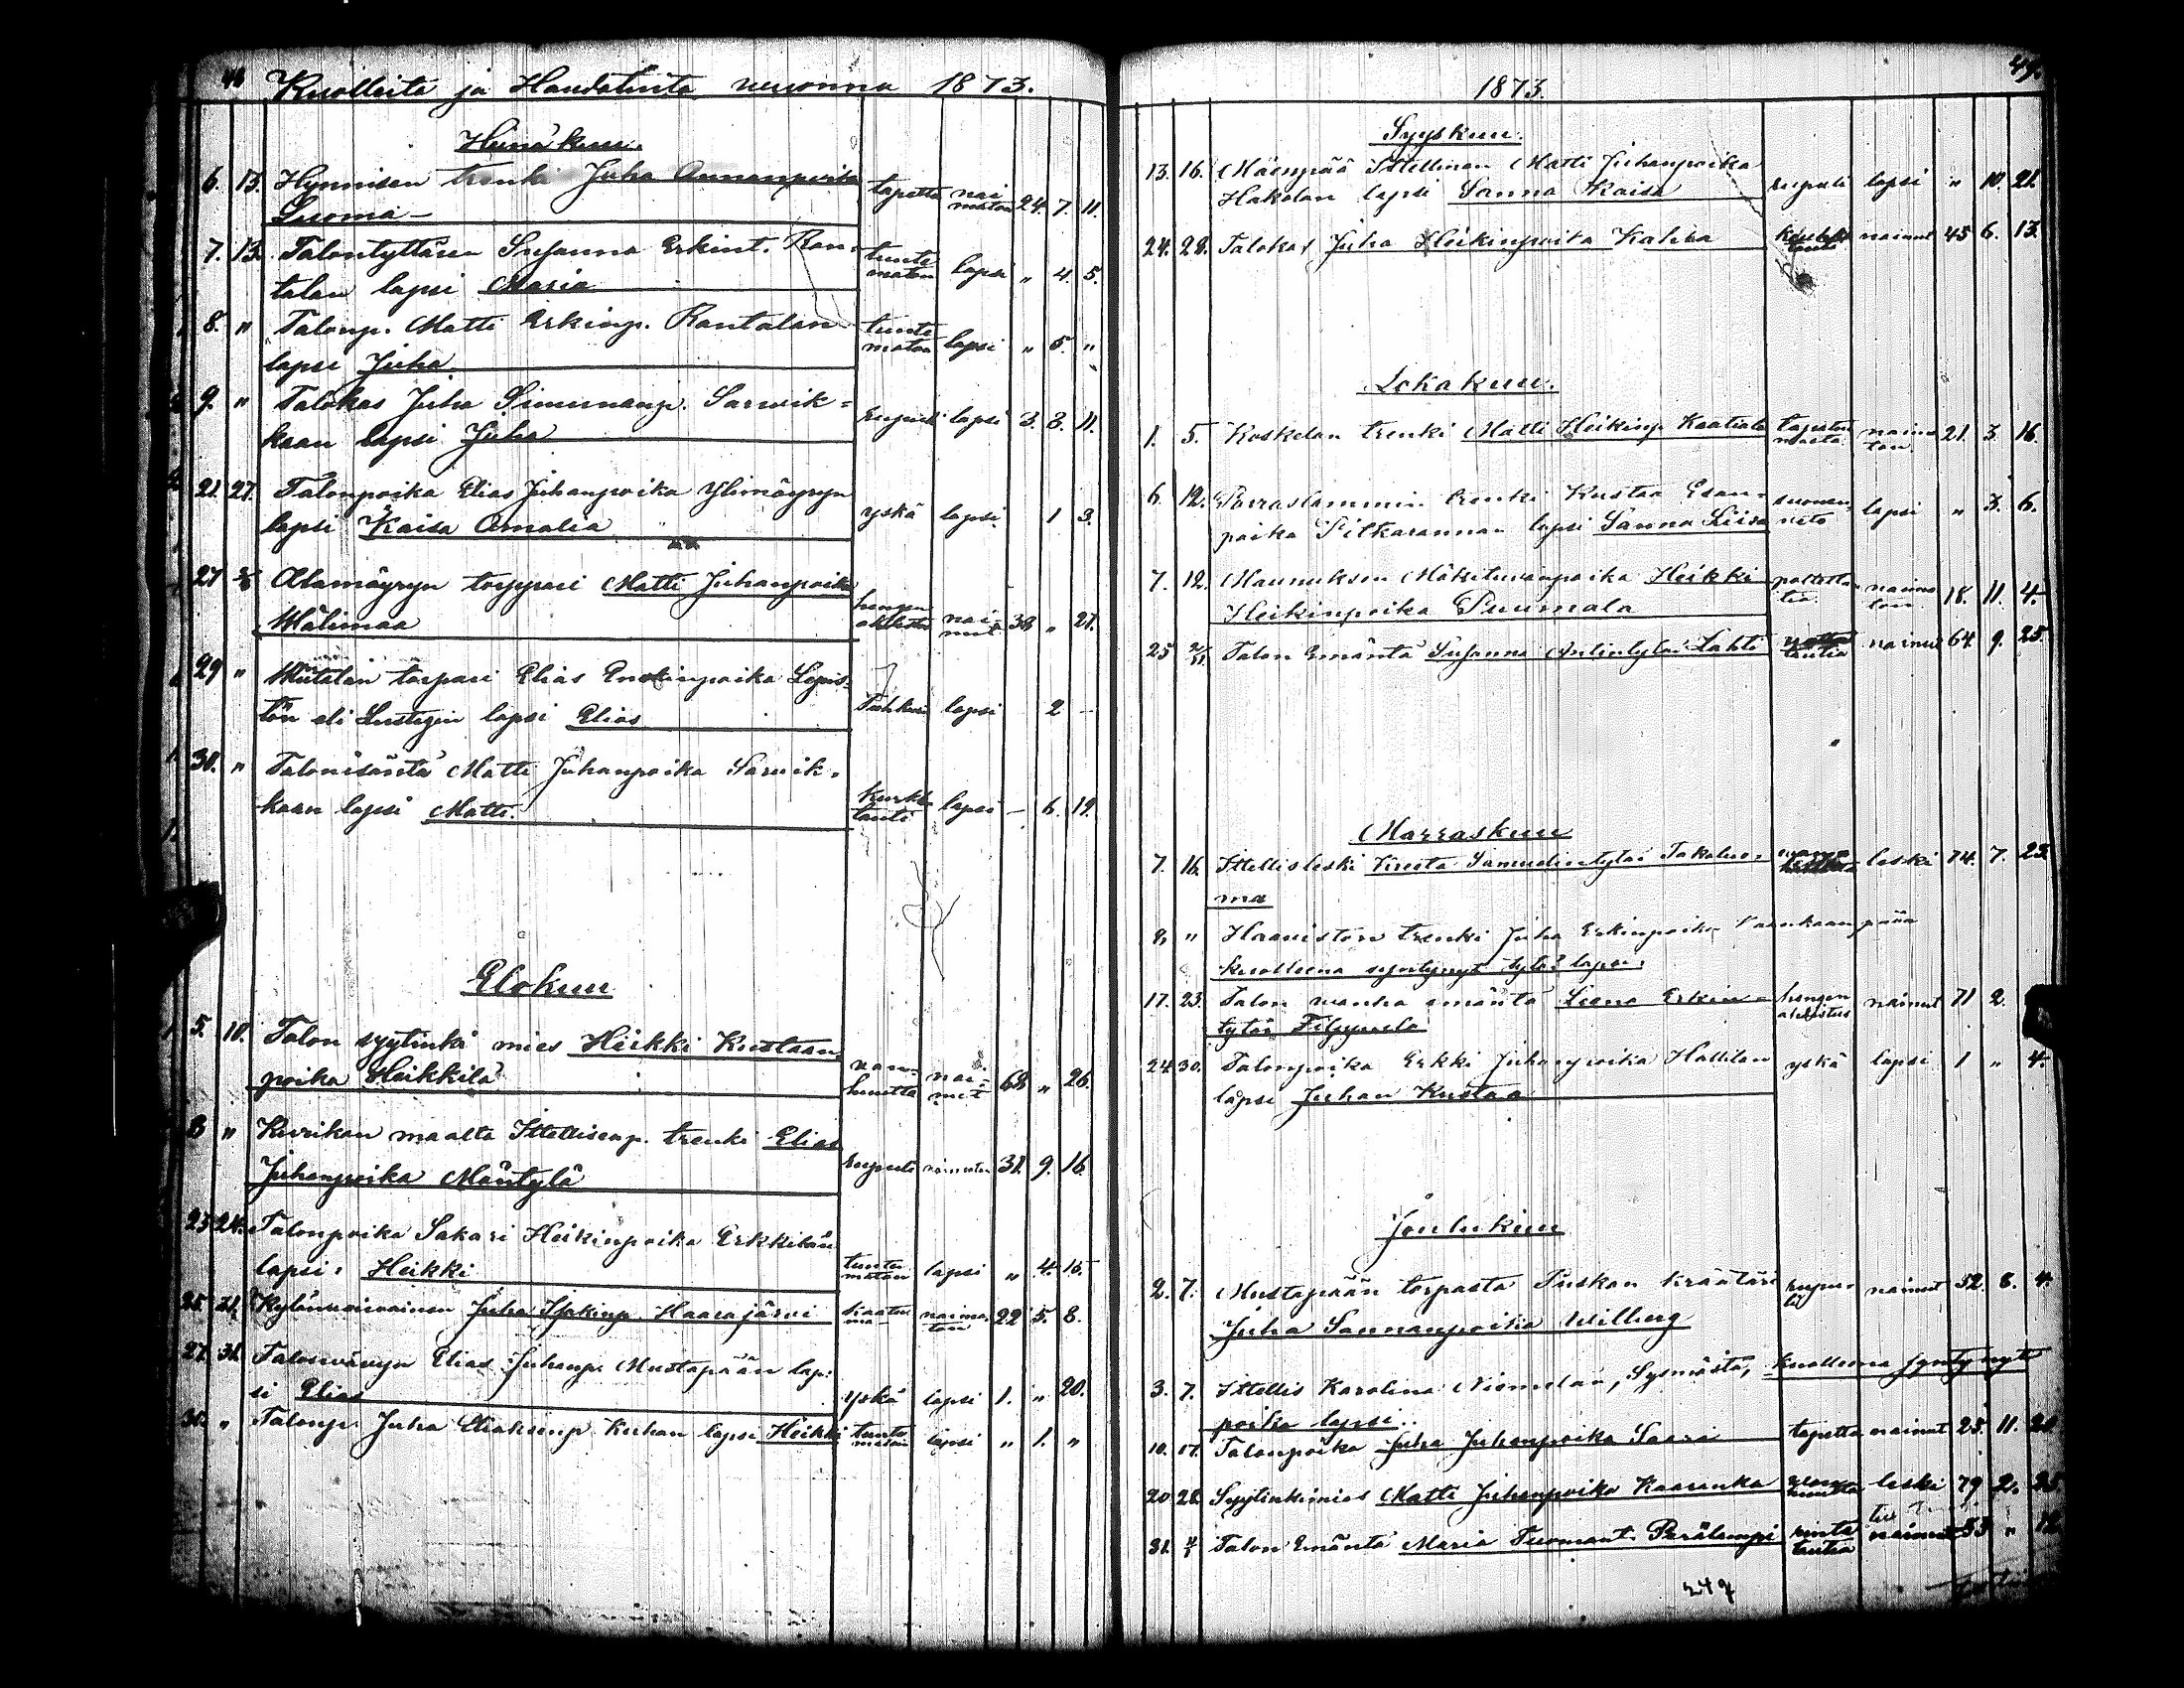 48 Kuolleita ja Haudatuita vuonna 1873.
Heinäkuu.
6. 13. Hynnisen trenki Juha Annanpoika tapettu nai
Luoma — maton 24. 7. 11.
7. 13. Talontyttären Susanna Erkint. Ran- tunte
talan lapsi Maria maton lapsi " 4. 5.
8. " Talonp. Matti Erkinp. Rantalan tunte
lapsi Juha. maton lapsi " 5. "
9. " Talokas Juha Simunanp. Sarwik=
kaan lapsi Juha rupuli lapsi 3. 8. 11.
21. 27. Talonpoika Elias Juhanpoika Ylimäyryn
lapsi Kaisa Amalia yskä lapsi 1 3.
27 3/8 Alamäyryn torppari Matti Juhanpoika hengen
Wälimaa ahdistus nai-nut 38 " 27.
29 " torpari Elias Enokinpoika
tön eli Lustigin lapsi Elias lapsi 2 —
30. " Talonisäntä Matti Juhanpoika Sarwik-
kaan lapsi Matti. kurkku tauti lapsi — 6. 19.
Elokuu
5. 10. Talon syytinki mies Heikki Kustaan-
poika Heikkilä wan- huutta nai- nut 68 " 26.
8 " Kurikan maalta Ittellisenp. trenki Elias
Juhanpoika Mäntylä rupuli naimaton 31. 9. 16.
23 24. Talonpoika Sakari Heikinpoika Erkkilän
lapsi: Heikki tunte maton lapsi " 4. 15.
25. 31. Kylänwaiwainen Juha Isakinp. Haarajärwi kaatu ma naima- ton 22 5. 8.
27. 31. Talonwäwyn Elias Juhanp. Mustapään lap-
si Elias yskä lapsi 1. " 20.
30. " Talonp. Juha Eliaksenp. Kuhan lapsi Heikki tunte maton lapsi " 1. "
1873. 49.
Syyskuu.
13. 16. Mäenpää Ittellinen Matti Juhanpoika
Hakolan lapsi Sanna Kaisa rupuli lapsi " 10. 21.
24. 28. Talokas Juha Heikinpoika Kahra nainut 45 6. 13.
Lokakuu.
1. 5. Koskelan trenki Matti Heikinp. Kaatiala naima ton 21. 3. 16.
6. 12. Parraslammin trenki Kustaa Esan- suonen
poika Pitkärannan lapsi Sanna Liisa weto lapsi " 3. 6.
7. 12. Maunuksen Mäkituwanpoika Heikki polttotau
Heikinpoika Puumala tia. naima ton 18. 11. 4.
25 2/11 Talon Emäntä Susanna Antintytär Lahti nainut 64. 9. 25.
Marraskuu
7. 16. Ittellisleski Kreeta Samuelintytär Takaluo-
ma leski 74. 7. 23.
8. " Haawiston trenki Juha Erkinpoika
kuolleena syntynyt tytär lapsi.
17. 23. Talon wanha emäntä Leena Erkin- hengen
tytär Filppula ahdistus nainut 71 2.
24. 30. Talonpoika Erkki Juhanpoika Hallilan
lapsi Juhan Kustaa yskä lapsi 1 " 4.
Joulukuu
2. 7. Mustapään torpasta Puskan kräätäri rupu- li nainut 52. 8. 4.
Juha Sannanpoika Wilberg
3. 7. Ittellis Karolina Niemelän, Sysmästä, kuolleena syntynyt
poika lapsi.
10. 17. Talonpoika Juha Juhanpoika Saari tapettu nainut 25. 11. 20
20 28. Syytinkimies Matti Juhanpoika Kaaranka wan- huutta leski 79 2. 25.
31. 4/1 Talon Emäntä Maria Tuomant. Perälampi rinta tautia nainut 53 " 12.